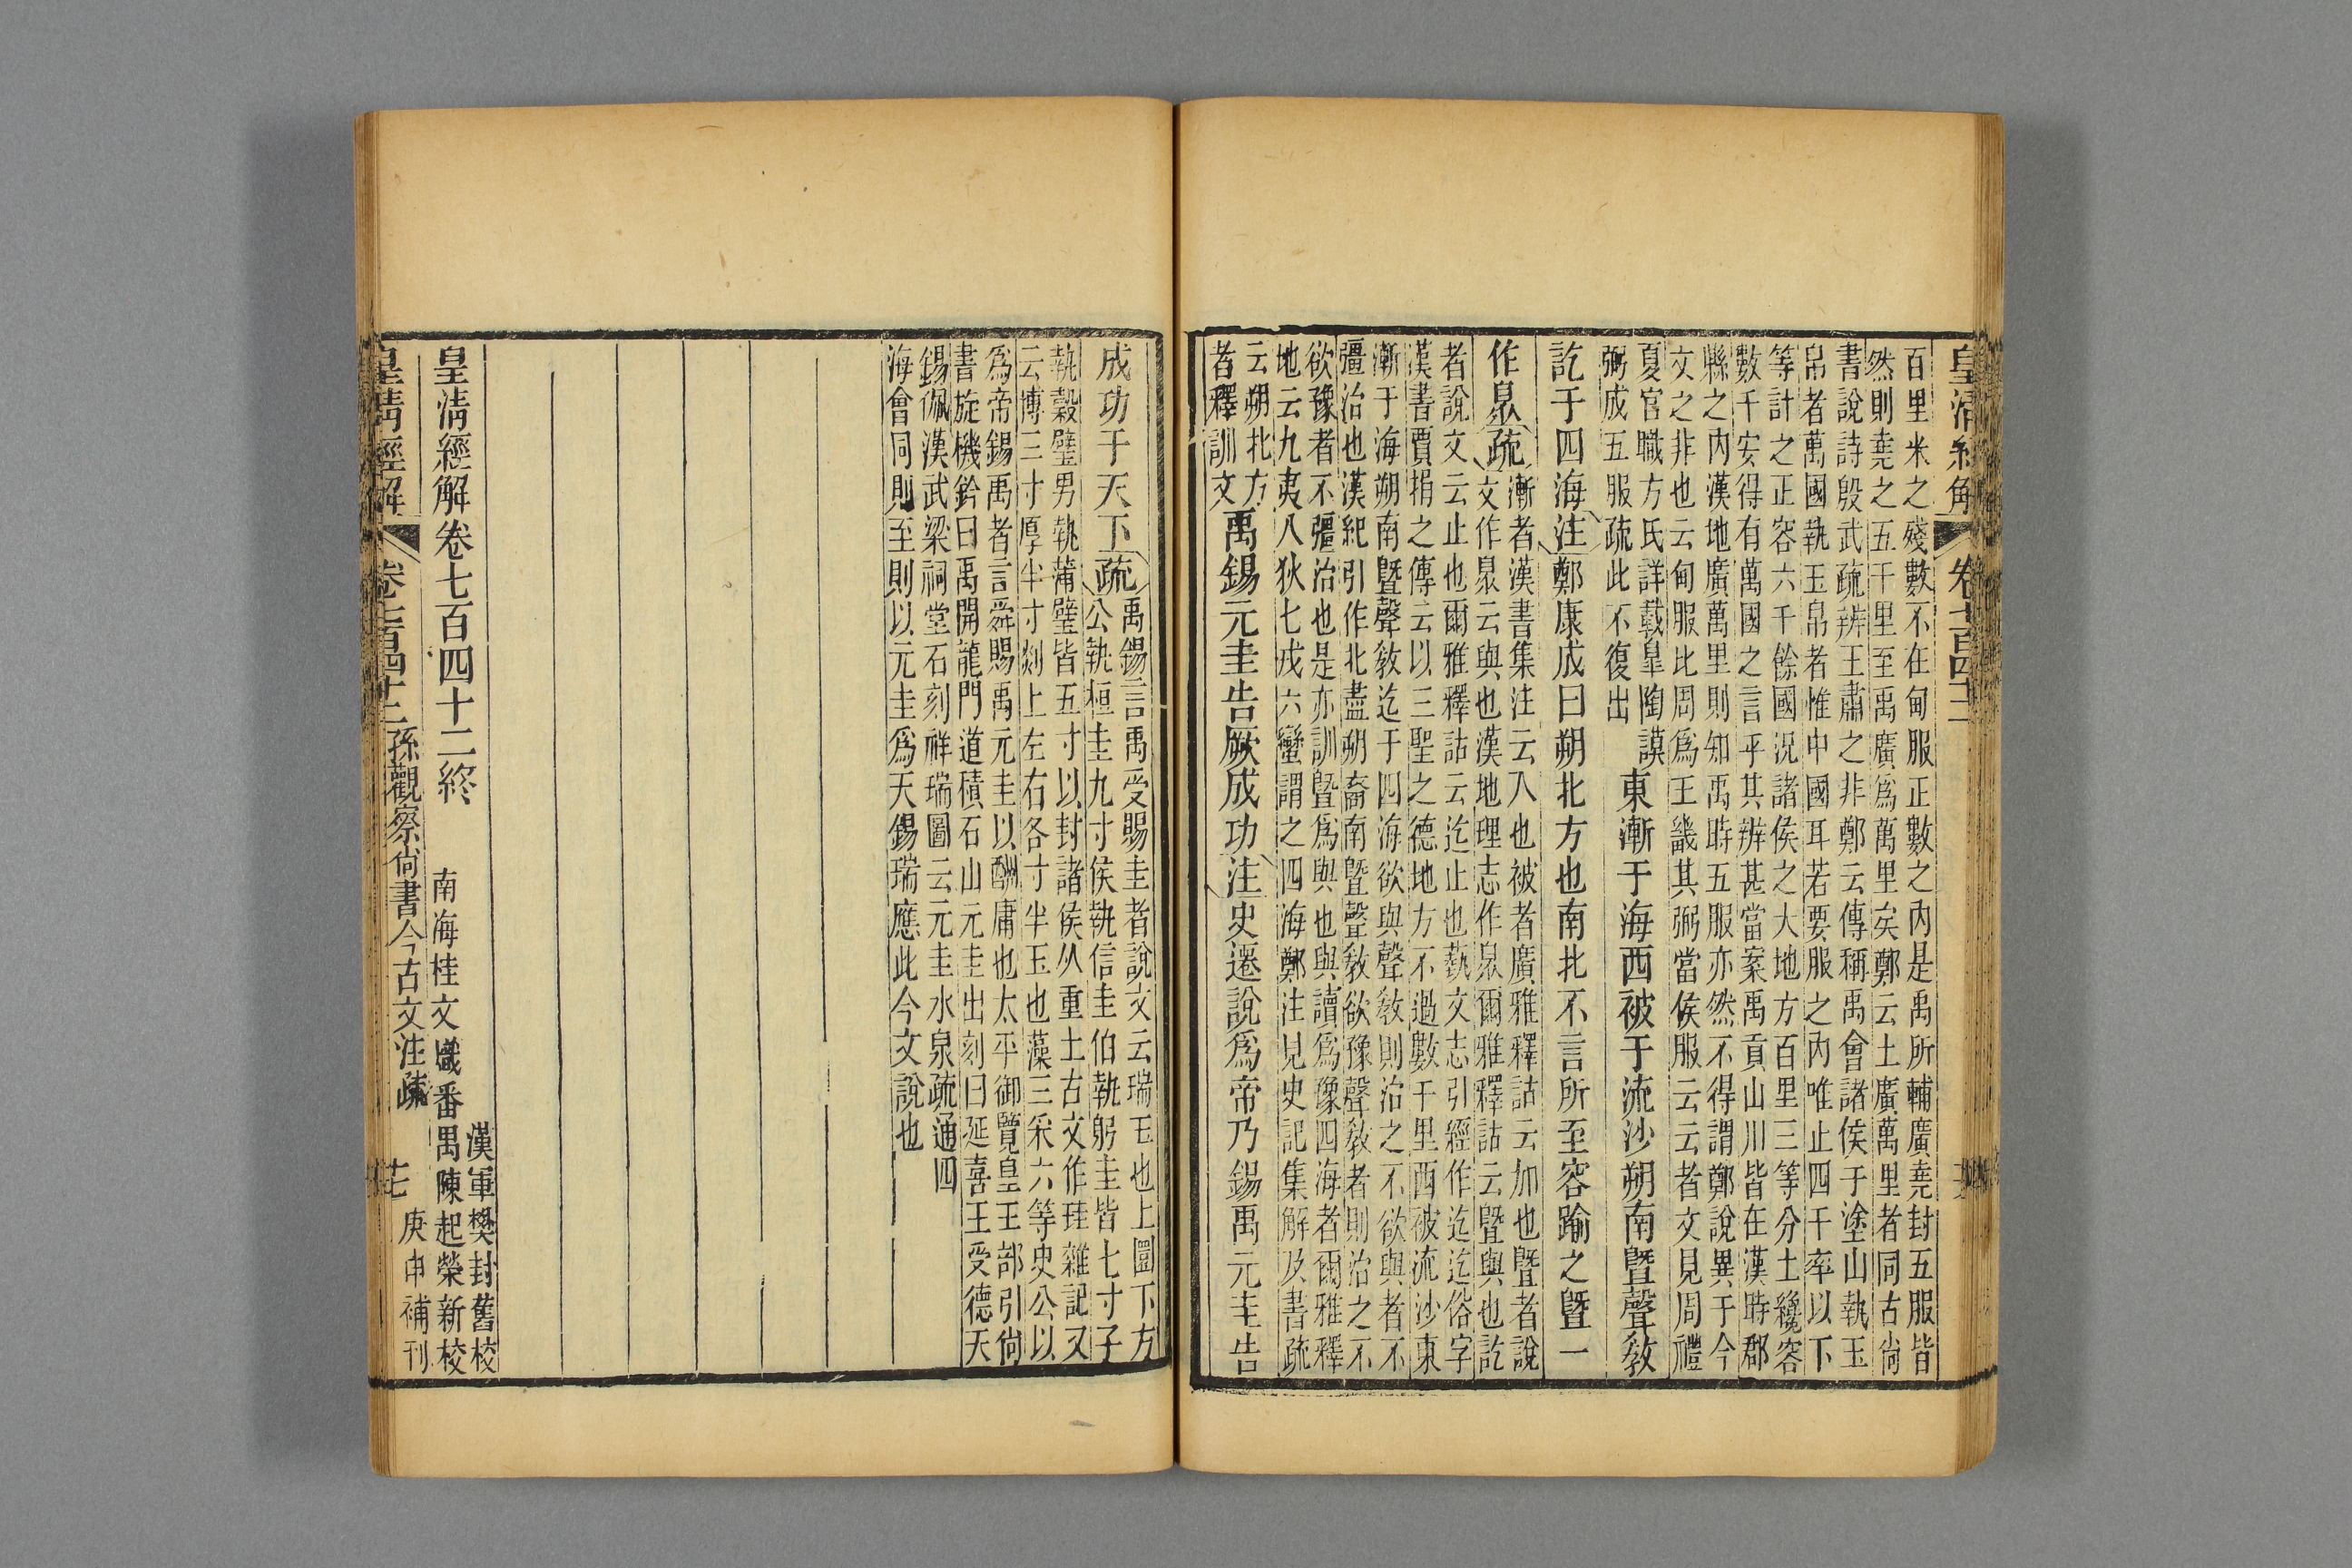 皇清經解 卷七百四十二
百里米之殘數不在甸服正數之內是禹所輔廣堯封五服皆
然則堯之五千里至禹廣爲萬里矣鄭云土廣萬里者同古尙
書說詩殷武疏辨王肅之非鄭云傳稱禹會諸侯于塗山執玉
帛者萬國執玉帛者惟中國耳若要服之內唯止四千率以下
等計之正容六千餘國況諸侯之大地方百里三等分土纔容
數千安得有萬國之言乎其辨甚當案禹貢山川皆在漢時郡
縣之內漢地廣萬里則知禹時五服亦然不得謂鄭說異于今
文之非也云甸服比周爲王畿其弼當侯服云云者文見周禮
夏官職方氏詳載皐陶謨
弼成五服疏此不復出
東漸于海西被于流沙朔南曁聲敎
訖于四海注鄭康成曰朔北方也南北不言所至容踰之曁一
作臮疏
漸者漢書集注云入也被者廣雅釋詁云加也曁者說
文作臮云與也漢地理志作臮爾雅釋詁云曁與也訖
者說文云止也爾雅釋詁云迄止也藝文志引經作迄迄俗字
漢書賈捐之傳云以三聖之德地方不過數千里西被流沙東
漸于海朔南曁聲敎迄于四海欲與聲敎則治之不欲與者不
彊治也漢紀引作北盡朔裔南曁聲敎欲豫聲敎者則治之不
欲豫者不彊治也是亦訓曁爲與也與讀爲豫四海者爾雅釋
地云九夷八狄七戎六蠻謂之四海鄭注見史記集解及書疏
云朔北方
者釋訓文
禹錫元圭告厥成功注史遷說爲帝乃錫禹元圭告
成功于天下疏
禹錫言禹受賜圭者說文云瑞玉也上圜下方
公執桓圭九寸侯執信圭伯執躬圭皆七寸子
執穀璧男執蒲璧皆五寸以封諸侯从重土古文作珪雜記又
云博三寸厚半寸剡上左右各寸半玉也藻三采六等史公以
爲帝錫禹者言舜賜禹元圭以酬庸也太平御覽皇王部引尙
書旋機鈐曰禹開龍門道積石山元圭出刻曰延喜王受德天
錫佩漢武梁祠堂石刻祥瑞圖云元圭水泉疏通四
海會同則至則以元圭爲天錫瑞應此今文說也
漢軍樊封舊校
皇清經解卷七百四十二終 南海桂文熾番禺陳起榮新校
皇清經解 卷七百四十二 孫觀察尙書今古文注疏 七 庚申補刊